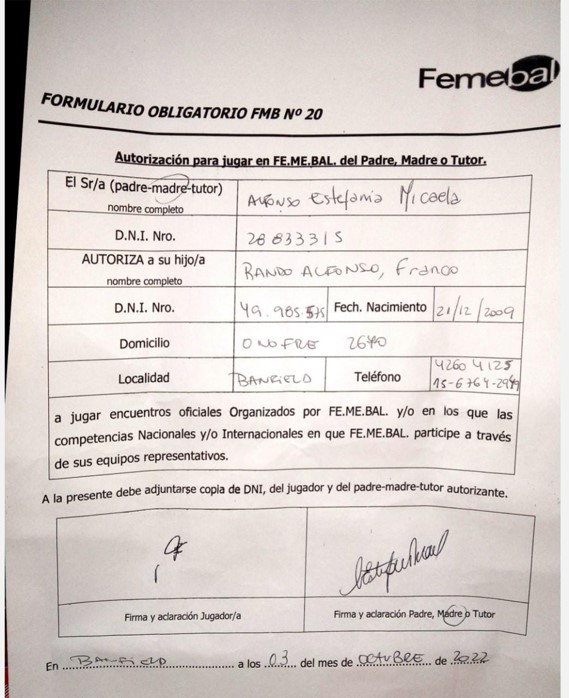 Femebal
FORMULARIO OBLIGATORIO FMB Nº 20
Autorización para jugar en FE.ME.BAL. del Padre, Madre o Tutor.
El Sr/a (padre-madre-tutor)
nombre completo
Alfonso Estefania Micaela
D.N.I. Nro.
28833315
AUTORIZA a su hijo/a
nombre completo
RANDO ALFONSO, Franco
D.N.I. Nro.
49.985.575
Fech. Nacimiento
21/12/2009
Domicilio
ONOFRE 2640
Localidad
BANFIELD
Teléfono
4260 4125
15-6764-2949
a jugar encuentros oficiales Organizados por FE.ME.BAL. y/o en los que las
competencias Nacionales y/o Internacionales en que FE.ME.BAL. participe a través
de sus equipos representativos.
A la presente debe adjuntarse copia de DNI, del jugador y del padre-madre-tutor autorizante.
Firma y aclaración Jugador/a
Firma y aclaración Padre, Madre o Tutor
En BANFIELD a los 03 del mes de OCTUBRE de 2022